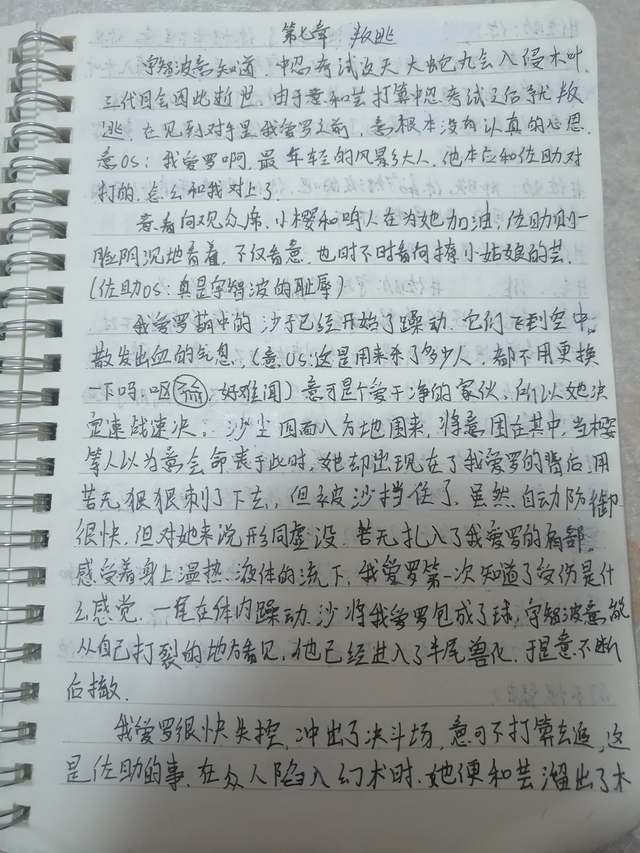 第七章 叛逃
宇智波意知道，中忍考试这天大蛇丸会入侵木叶
三代目会因此逝世，由于意和芸打算中忍考试之后就叛
逃，在见到对手是我爱罗之前，意根本没有认真的心思.
意OS：我爱罗啊，最年轻的风影大人，他本应和佐助对
打的，怎么和我对上了.
意看向观众席，小樱和鸣人在为她加油，佐助则一
脸阴沉地看着，不仅看意，也时不时看向撩小姑娘的芸
（佐助OS：真是宇智波的耻辱）
我爱罗葫中的沙子已经开始了躁动，它们飞到空中，
散发出血的气息，（意OS：这是用来杀了多少人，都不用更换
一下吗，呕 好难闻）意可是个爱干净的家伙，所以她决
定速战速决。沙尘四面八方地围来，将意困在其中，当樱
等人以为意会命丧于此时，她却出现在了我爱罗的背后，用
苦无狠狠刺了下去，但被沙挡住了，虽然自动防御
很快，但对她来说形同虚设，苦无扎入了我爱罗的肩部，
感受着身上温热液体的流下，我爱罗第一次知道了受伤是什
么感觉，一尾在体内躁动，沙将我爱罗包成了球，宇智波意
从自己打裂的地方看见，他已经进入了半尾兽化，于是意不断
后撤.
我爱罗很快失控，冲出了决斗场，意可不打算去追，这
是佐助的事，在众人陷入幻术时，她便和芸溜出了木